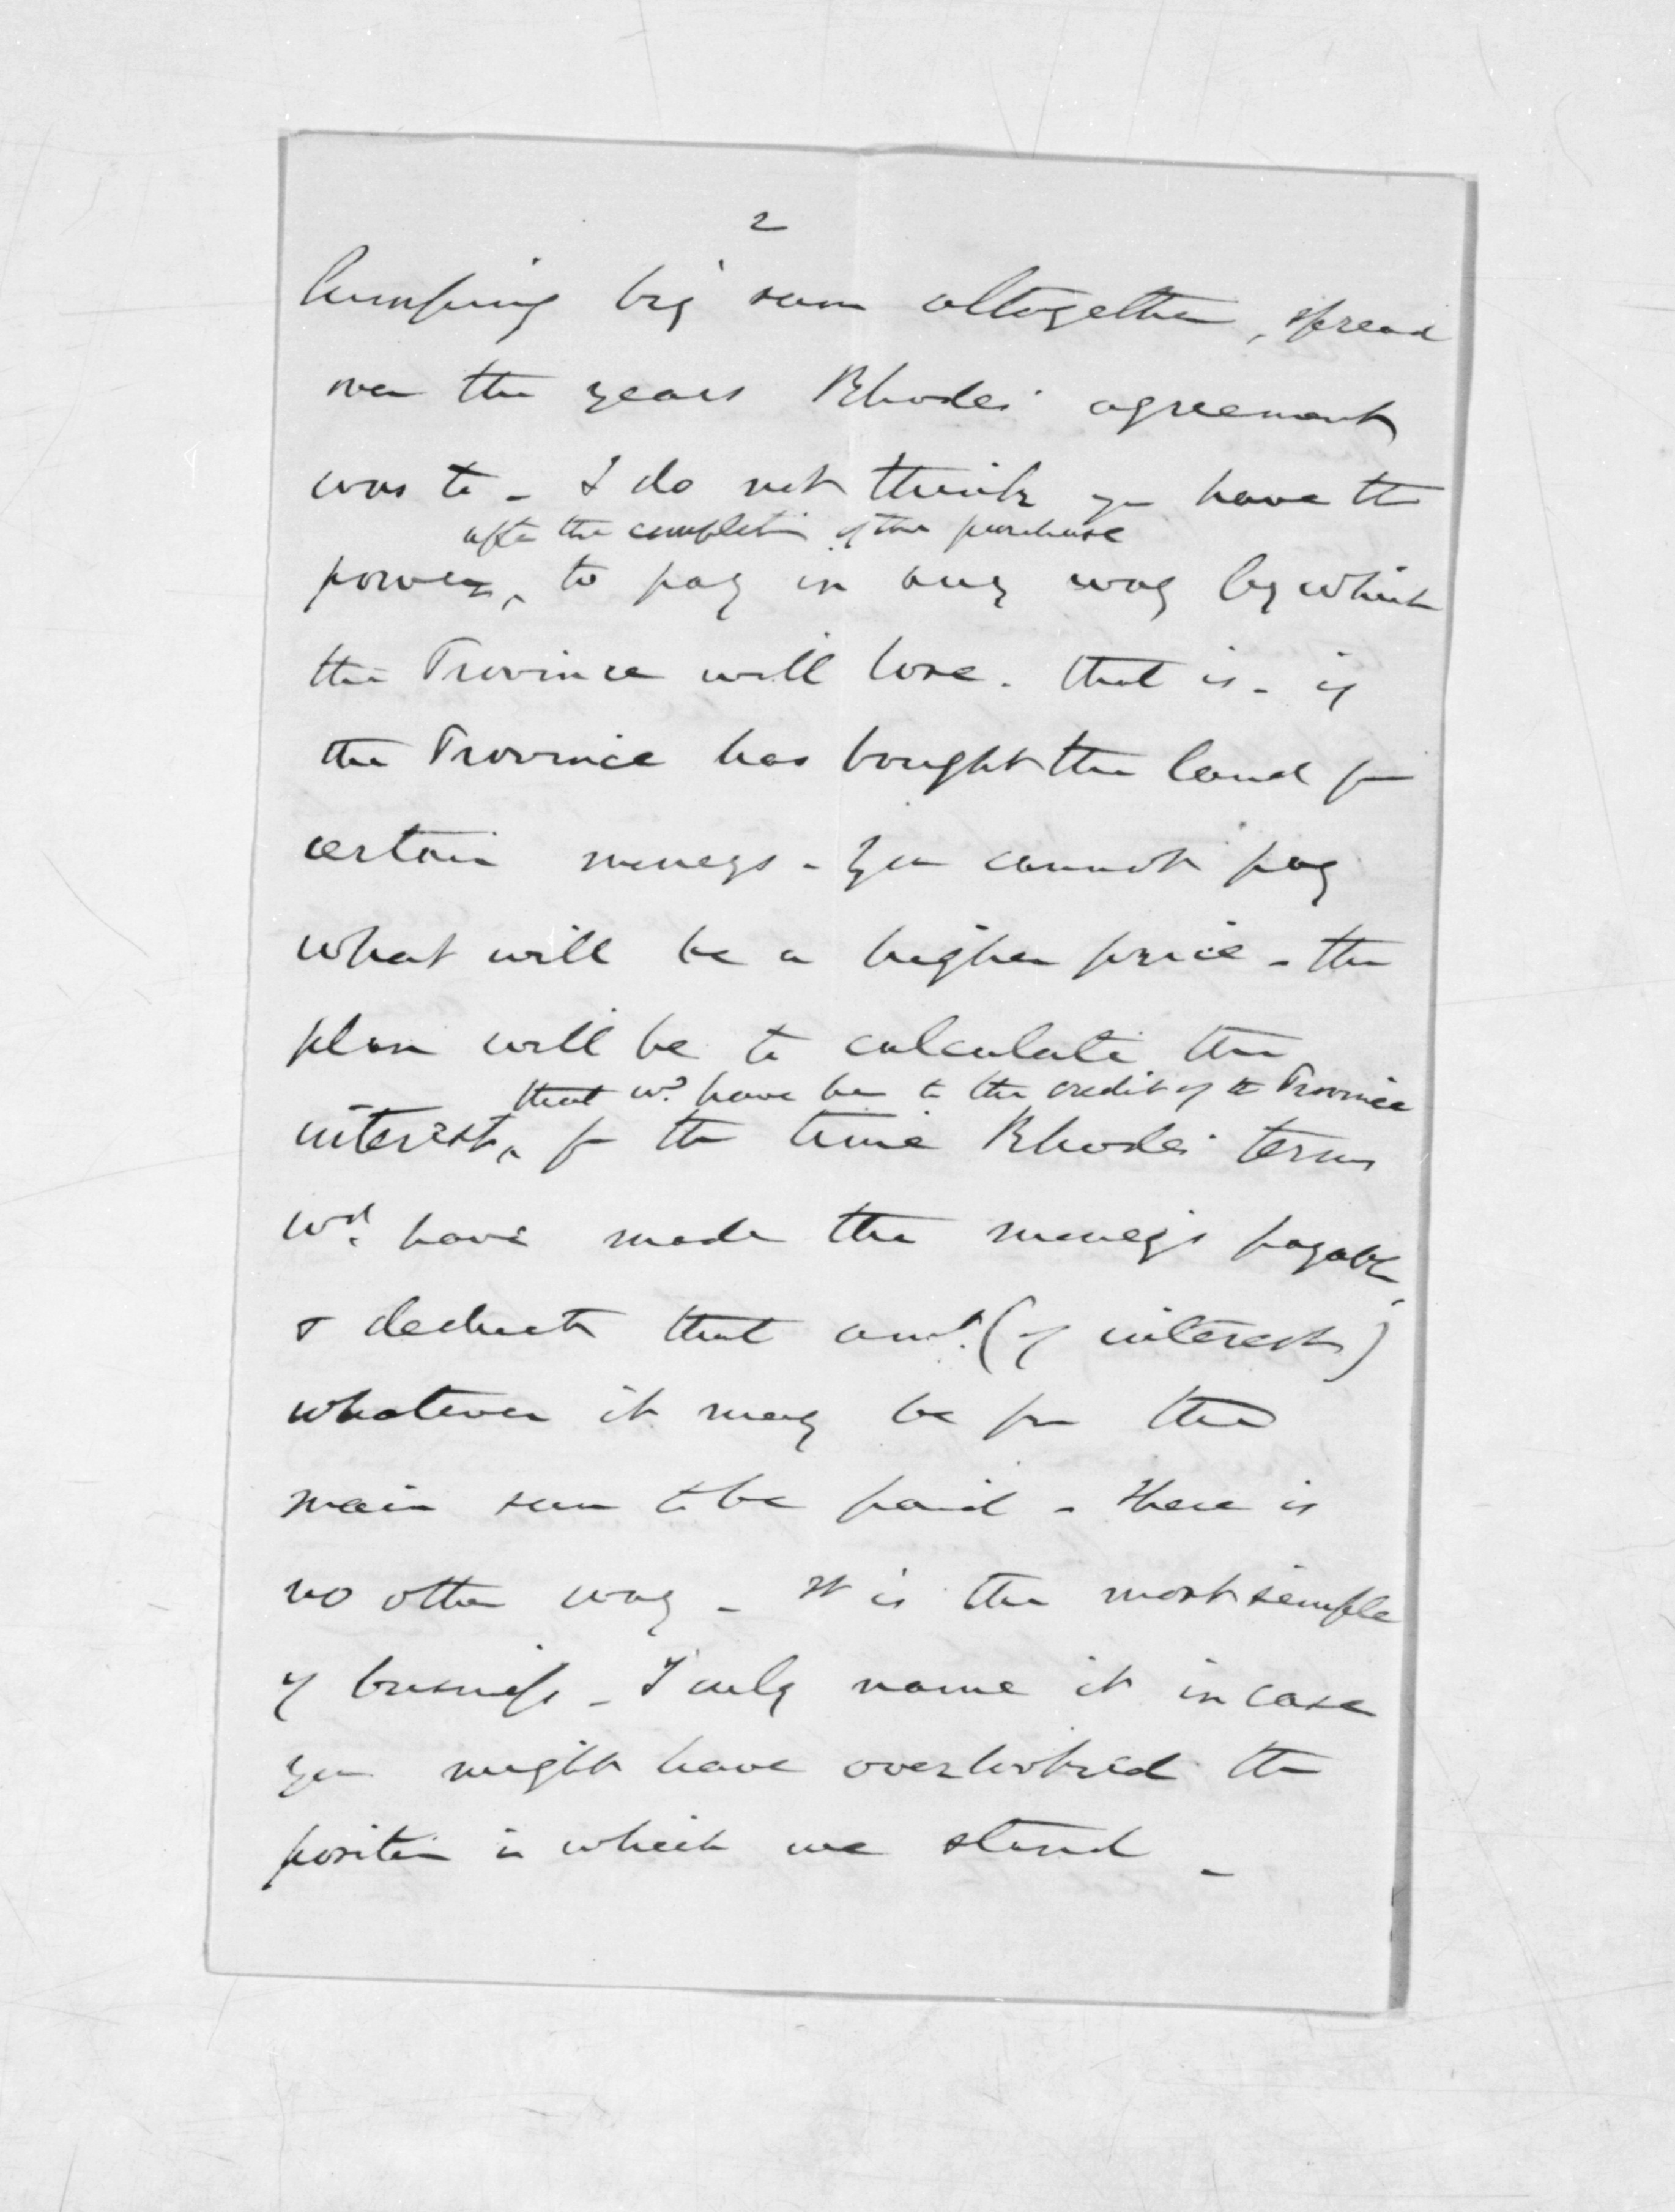 2
lumping big sum altogether, spread
over the years Rhodes' agreement
was to - I do not think you have the
after the completion of the purchase
power, to pay in any way by which
the Province will lose. that is - if
the Province has bought the land for
certain moneys - you cannot pay
what will be a higher price - the
plan will be to calculate the
that wd. have been to the credit of the Province
interest, for the time Rhodes' terms
wd. have made the moneys payable,
& deduct that amt. (of interest)
whatever it may be from the
main sum to be paid - there is
no other way - It is the most simple
of business - I only name it in case
you might have overlooked the
position in which we stand -